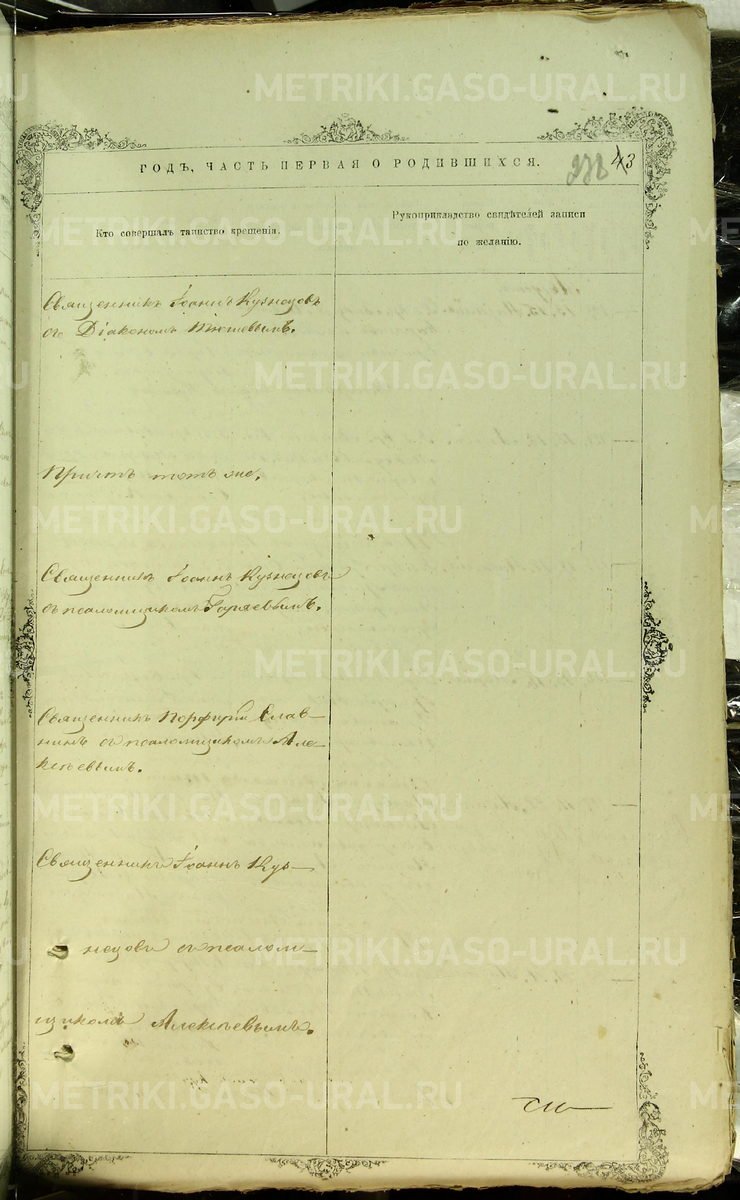 ГОДЪ, ЧАСТЬ ПЕРВАЯ О РОДИВШИХСЯ.
43
Кто совершалъ таинство крещенія.
Рукоприкладство свидѣтелей записи
по желанію.
Священникъ Іоаннъ Кузнецовъ
съ Діакономъ
Причтъ тотъ же.
Священникъ Іоаннъ Кузнецовъ
съ псаломщикомъ
Священникъ Порфирій Слав-
нинъ съ псаломщикомъ Але-
ксѣевымъ.
Священникъ Іоаннъ Куз-
нецовъ съ псалом-
щикомъ Алексѣевымъ.
METRIKI.GASO-URAL.RU